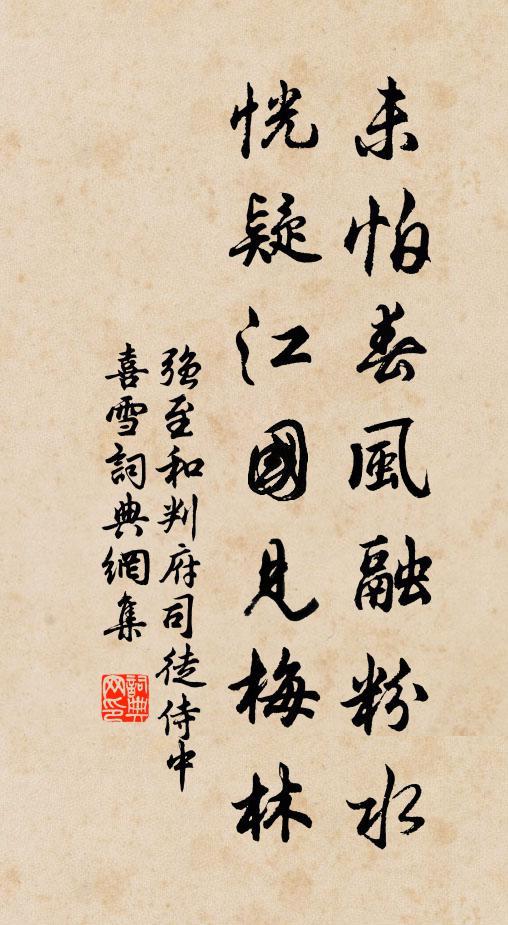 未怕春風融粉水
恍疑江國見梅林
強至和判府司徒侍中
喜雪詞典網集
詞典
网印